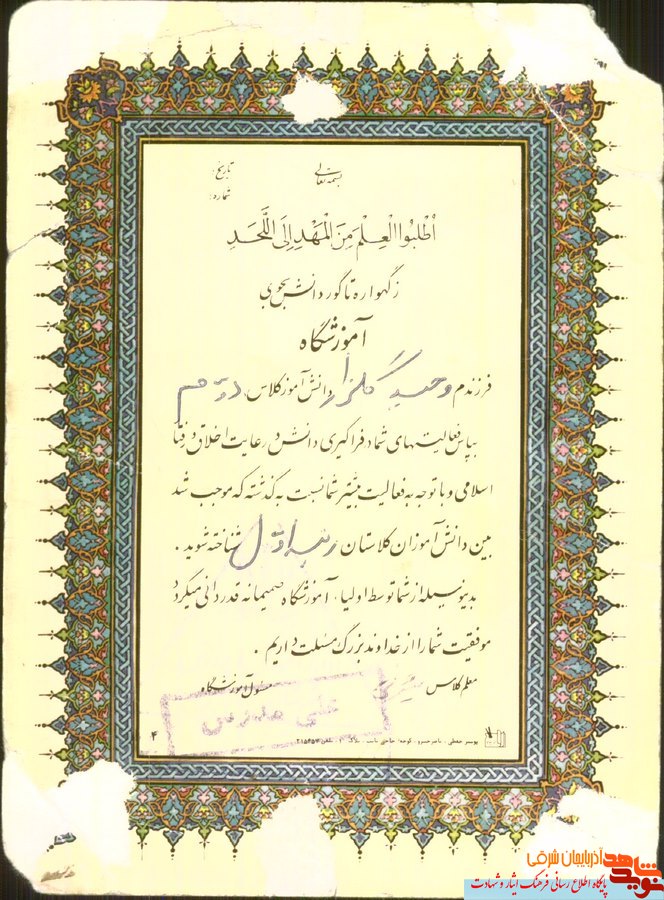 بسمه تعالی
تاریخ:
شماره:
اُطْلُبُوا الْعِلْمَ مِنَ الْمَهْدِ اِلَی اللَّحَدِ
ز گهواره تا گور دانش بجوی
آموزشگاه
فرزندم وحید گلزار دانش آموز کلاس دوم
بپاس فعالیتهای شما در فراگیری دانش و رعایت اخلاق و رفتار
اسلامی و با توجه به فعالیت بیشتر شما نسبت به گذشته که موجب شد
بین دانش آموزان کلاستان رتبه اول شناخته شوید.
بدینوسیله از شما توسط اولیاء آموزشگاه صمیمانه قدردانی میگردد
موفقیت شما را از خداوند بزرگ مسئلت داریم.
معلم کلاس مسئول آموزشگاه
پوستر حفظی، ناصرخسرو، کوچه حاجی نایب، پلاک
۴
نوید شاهد آذربایجان شرقی
پایگاه اطلاع رسانی فرهنگ ایثار و شهادت